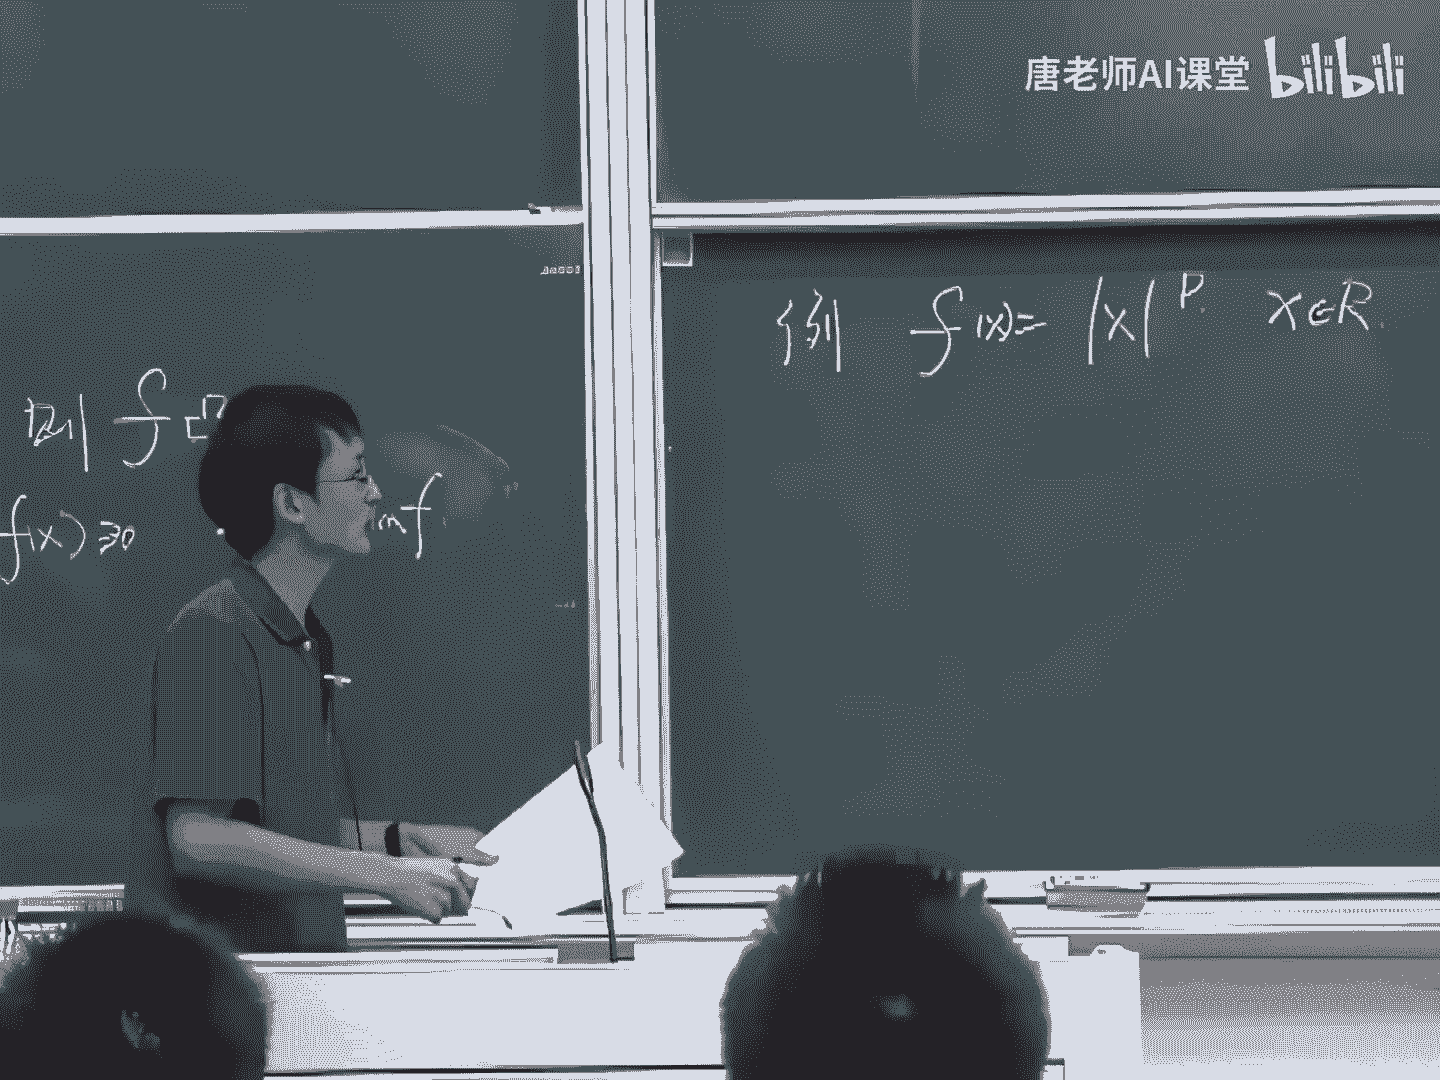 唐老师AI课堂 bilibili
则 f 凸
f(x) ≥0 m f
例 f(x)= |x|^p x∈R.